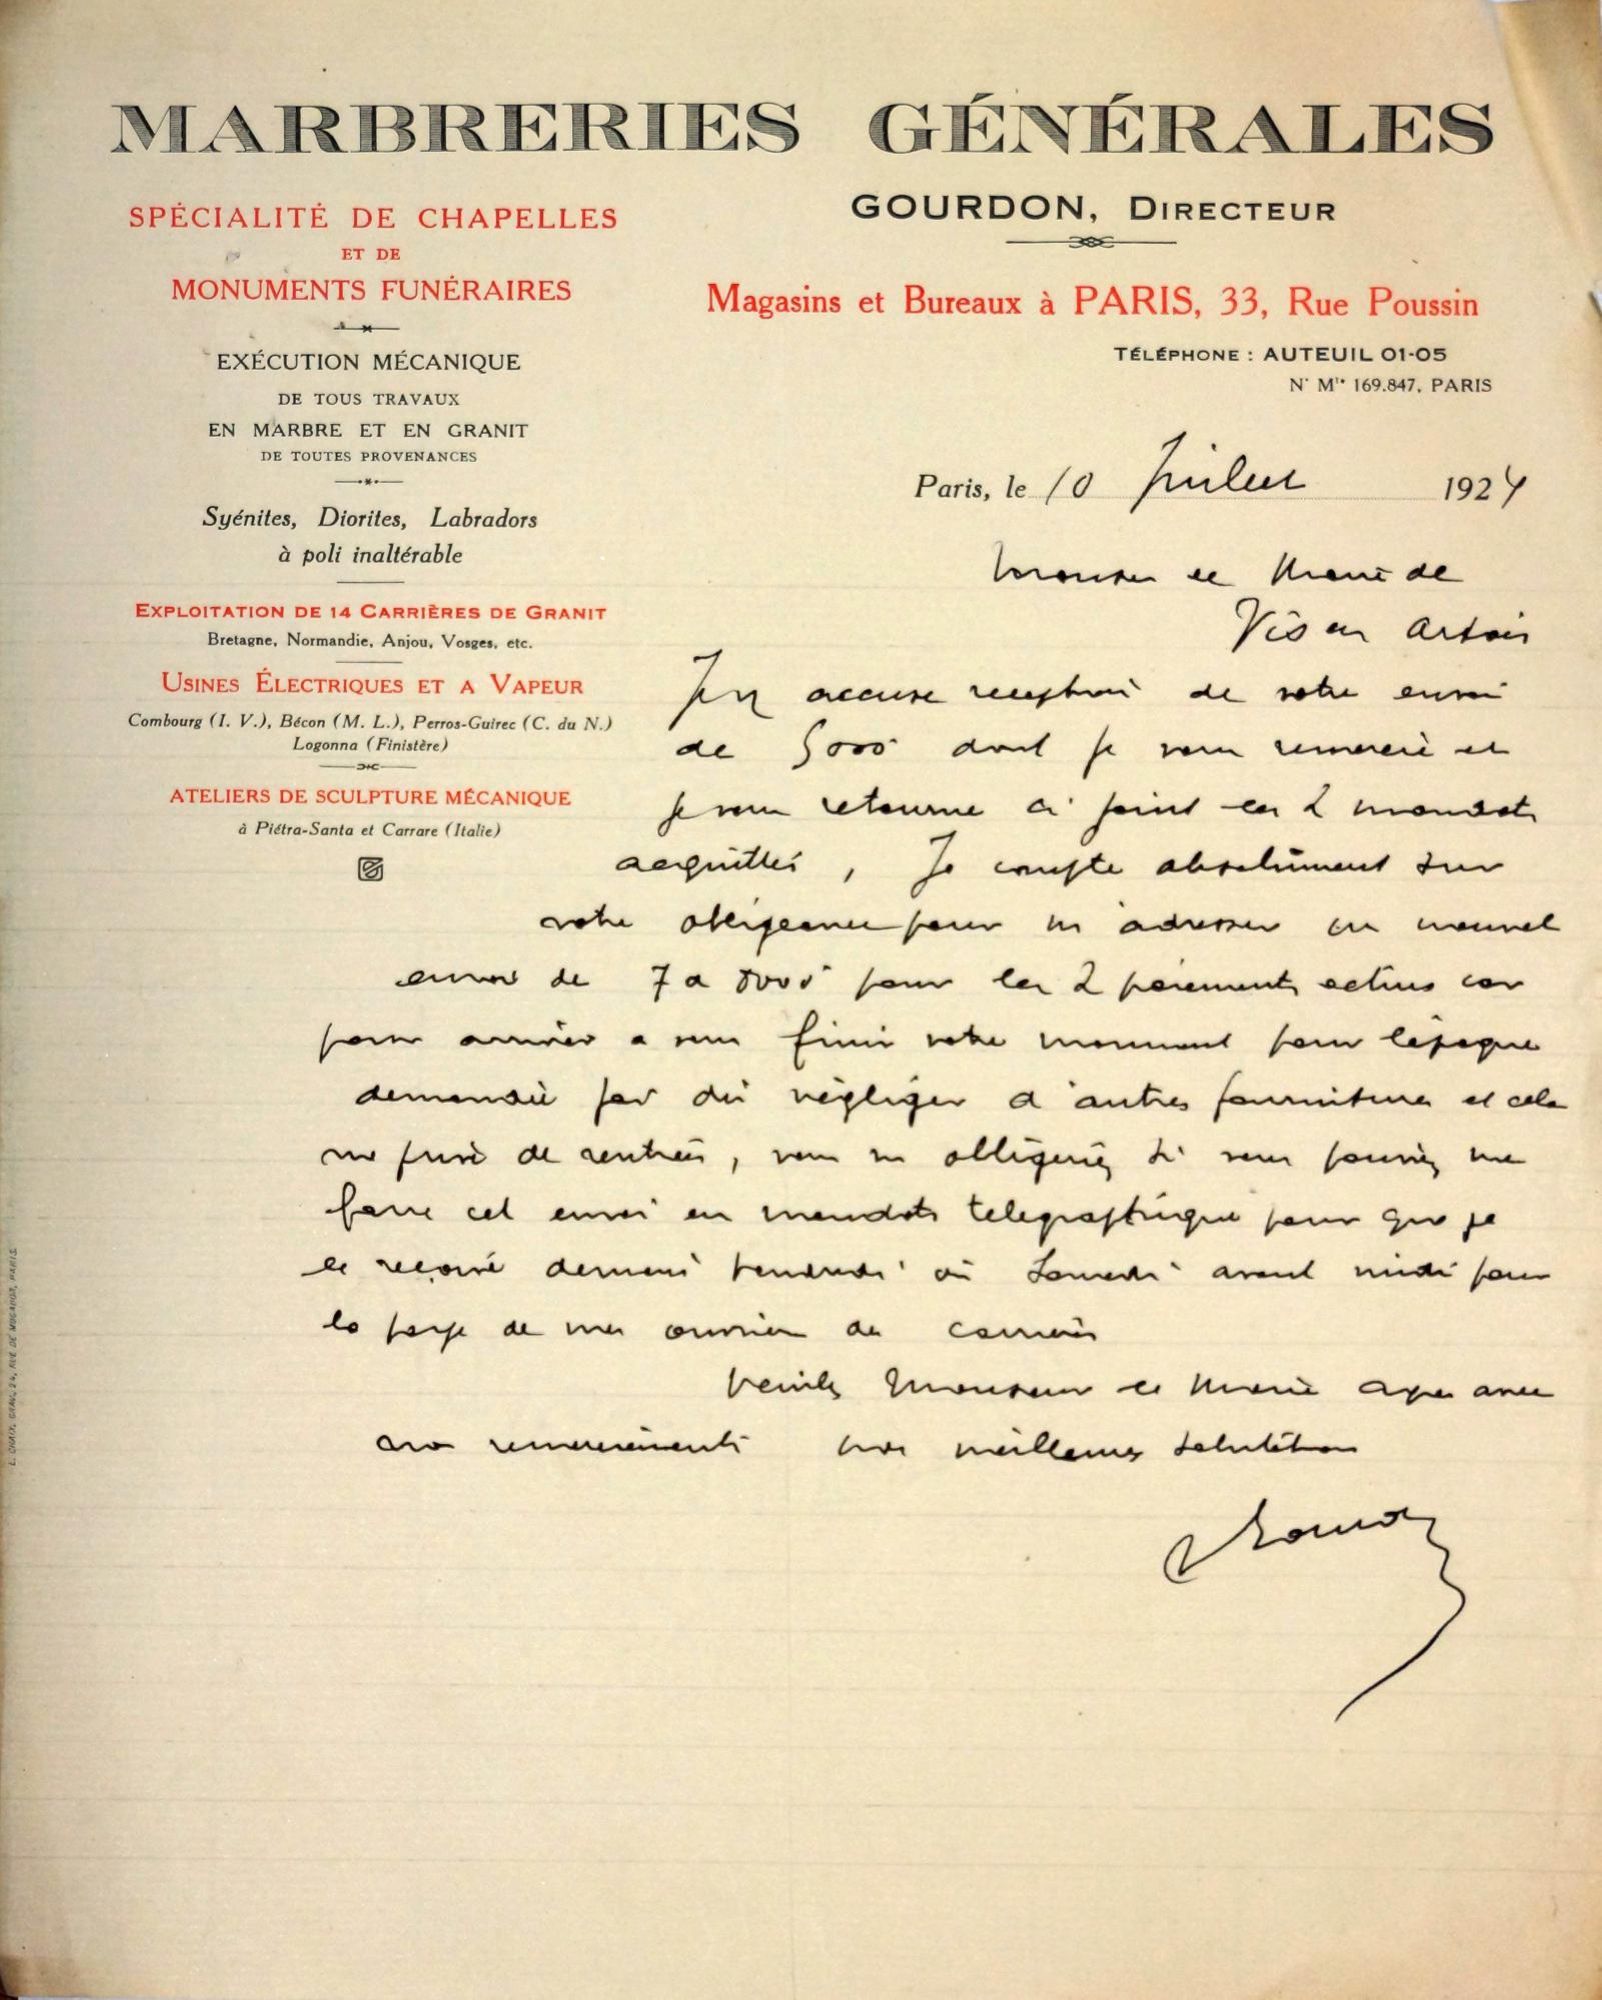 MARBRERIES GÉNÉRALES
GOURDON, DIRECTEUR
Magasins et Bureaux à PARIS, 33, Rue Poussin
TÉLÉPHONE : AUTEUIL 01-05
N° Mle 169.847, PARIS
SPÉCIALITÉ DE CHAPELLES
ET DE
MONUMENTS FUNÉRAIRES
EXÉCUTION MÉCANIQUE
DE TOUS TRAVAUX
EN MARBRE ET EN GRANIT
DE TOUTES PROVENANCES
Syénites, Diorites, Labradors
à poli inaltérable
EXPLOITATION DE 14 CARRIÈRES DE GRANIT
Bretagne, Normandie, Anjou, Vosges, etc.
USINES ÉLECTRIQUES ET A VAPEUR
Combourg (I. V.), Bécon (M. L.), Perros-Guirec (C. du N.)
Logonna (Finistère)
ATELIERS DE SCULPTURE MÉCANIQUE
à Piétra-Santa et Carrare (Italie)
Paris, le 10 Juillet 1924
Monsieur le Maire de
Vis en Artois
accuse reception de votre envoi
de 5000 dont je vous remercie et
je vous retourne ci joint les 2 mandats
acquittés, Je compte absolument sur
votre obligeance pour m'adresser un nouvel
envoi de 7 a 8000 pour les 2 paiements car
pour arriver a vous finir votre monument pour l'époque
demandée j'ai dû négliger d'autres fournitures et cela
me prive de rentrées, vous m'obligeriez si vous pouviez me
faire cet envoi en mandats telegraphique pour que je
le reçoive demain Vendredi ou Samedi avant midi pour
la paye de mes ouvriers de carrières
Veuillez Monsieur le Maire agréer avec
nos remerciements nos meilleures salutations
L. CHAIX, GRAV. 24, RUE DE MOGADOR, PARIS